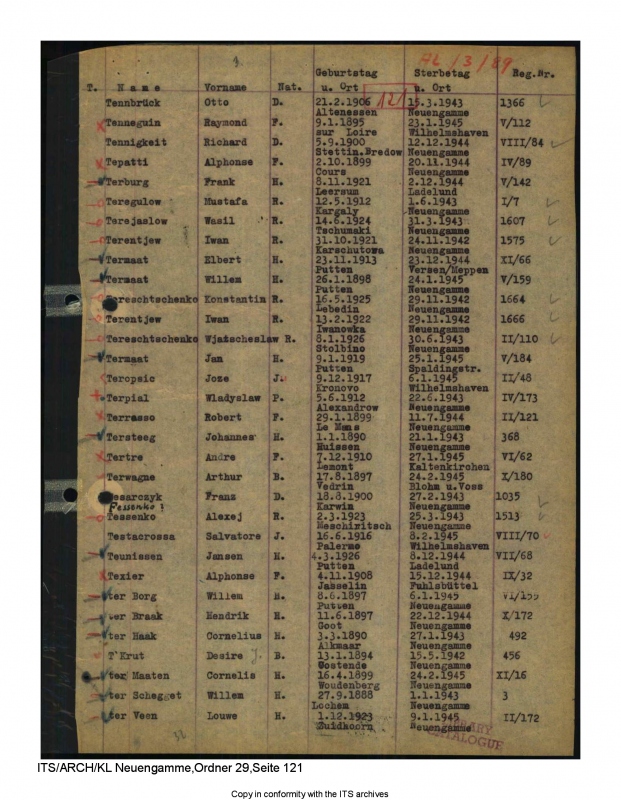 3
AL /3/89
Geburtstag Sterbetag Reg.Nr.
T. Name Vorname Nat. u. Ort 121 u. Ort
Tennbrück Otto D. 21.2.1906 15.3.1943 1366
Altenessen Neuengamme
Tenneguin Raymond F. 9.1.1895 23.1.1945 V/112
sur Loire Wilhelmshaven
Tennigkeit Richard D. 5.9.1900 12.12.1944 VIII/84
Stettin.Bredow Neuengamme
Tepatti Alphonse F. 2.10.1899 20.11.1944 IV/89
Cours Neuengamme
Terburg Frank H. 8.11.1921 2.12.1944 V/142
Leersum Ladelund
Teregulow Mustafa R. 12.5.1912 1.6.1943 I/7
Kargaly Neuengamme
Terejaslow Wasil R. 14.6.1924 31.3.1943 1607
Tschumaki Neuengamme
Terentjew Iwan R. 31.10.1921 24.11.1942 1575
Karschutowa Neuengamme
Termaat Elbert H. 23.11.1913 23.12.1944 XI/66
Putten Versen/Meppen
Termaat Willem H. 26.1.1898 24.1.1945 V/159
Putten Neuengamme
Tereschtschenko Konstantin R. 16.5.1925 29.11.1942 1664
Lebedin Neuengamme
Terentjew Iwan R. 13.2.1922 29.11.1942 1666
Iwanowka Neuengamme
Tereschtschenko Wjatscheslaw R. 8.1.1926 30.6.1943 II/110
Stolbino Neuengamme
Termaat Jan H. 9.1.1919 25.1.1945 V/184
Putten Spaldingstr.
Teropsic Joze J. 9.12.1917 6.1.1945 II/48
Kronovo Wilhelmshaven
Terpial Wladyslaw P. 5.6.1912 22.6.1943 IV/173
Alexandrow Neuengamme
Terrasso Robert F. 29.1.1899 11.7.1944 II/121
Le Mans Neuengamme
Tersteeg Johannes H. 1.1.1890 21.1.1943 368
Huissen Neuengamme
Tertre Andre F. 7.12.1910 27.1.1945 VI/62
Lemont Kaltenkirchen
Terwagne Arthur B. 17.8.1897 24.2.1945 X/180
Vedrin Blohm u.Voss
Tesarczyk Franz D. 18.8.1900 27.2.1943 1035
Fessenko? Karwin Neuengamme
Tessenko Alexej R. 2.3.1923 25.3.1943 1513
Meschiritsch Neuengamme
Testacrossa Salvatore J. 16.6.1916 8.2.1945 VIII/70
Palermo Wilhelmshaven
Teunissen Jansen H. 4.3.1926 8.12.1944 VII/68
Putten Ladelund
Texier Alphonse F. 4.11.1908 15.12.1944 IX/32
Jasselin Fuhlsbüttel
ter Borg Willem H. 8.6.1897 6.1.1945 VI/159
Putten Neuengamme
ter Braak Hendrik H. 11.6.1897 22.12.1944 X/172
Goot Neuengamme
ter Haak Cornelius H. 3.3.1890 27.1.1943 492
Alkmaar Neuengamme
T'Krut Desire J. B. 13.1.1894 15.5.1942 456
Oostende Neuengamme
ter Maaten Cornelis H. 16.4.1899 24.2.1945 XI/16
Woudenberg Neuengamme
ter Schegget Willem H. 27.9.1888 1.1.1943 3
Lochem Neuengamme
ter Veen Louwe H. 1.12.1923 9.1.1945 II/172
Zuidkoorn Neuengamme
CATALOGUE
ITS/ARCH/KL Neuengamme,Ordner 29,Seite 121
Copy in conformity with the ITS archives